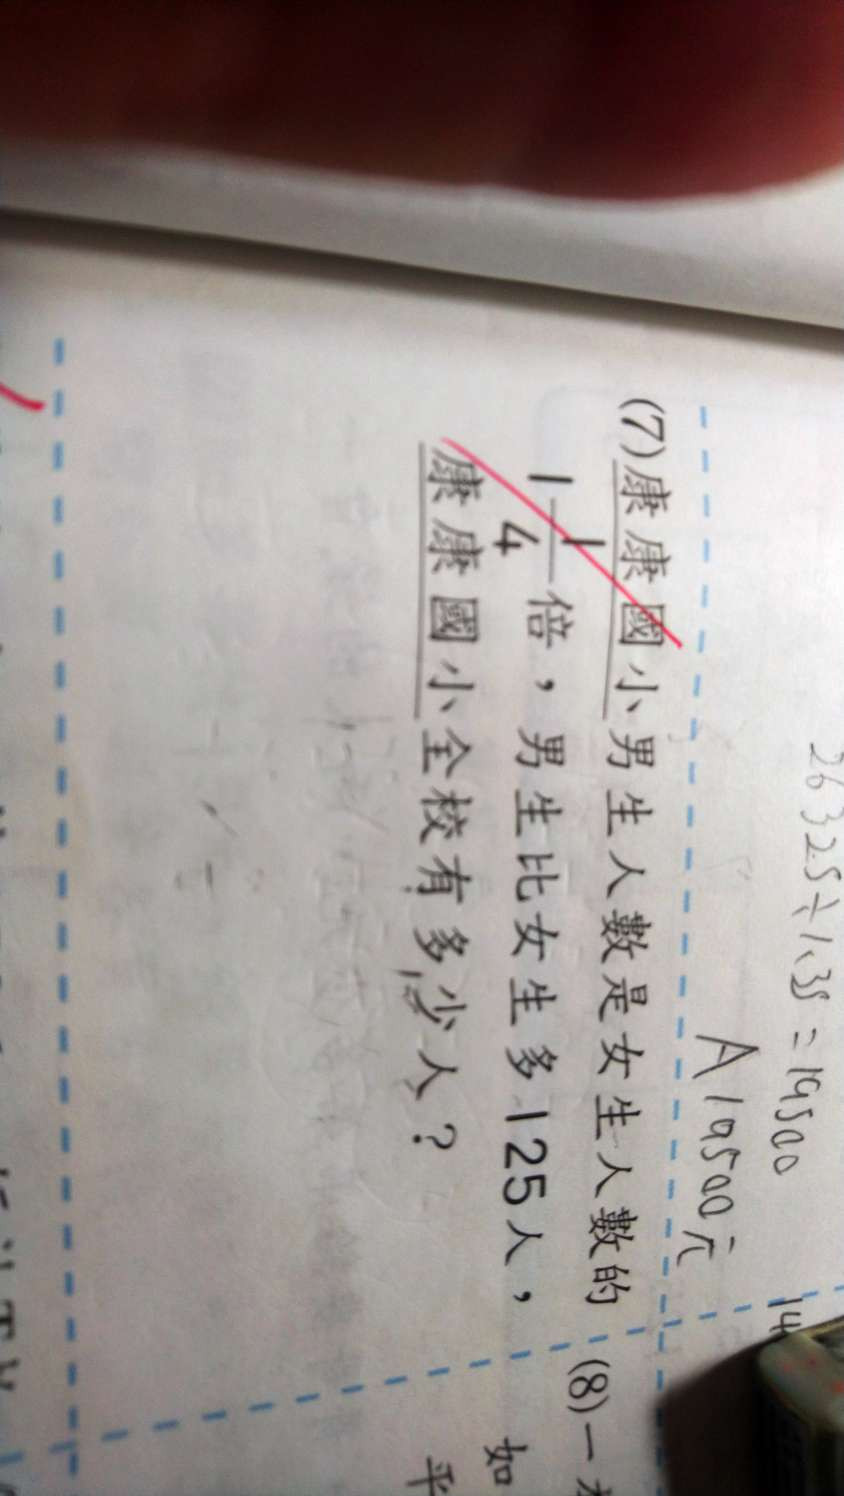 26325÷1.35=19500
A 19500元
14
(7)康康國小男生人數是女生人數的
1 1/4 倍，男生比女生多125人，
康康國小全校有多少人？
(8)一
如
平